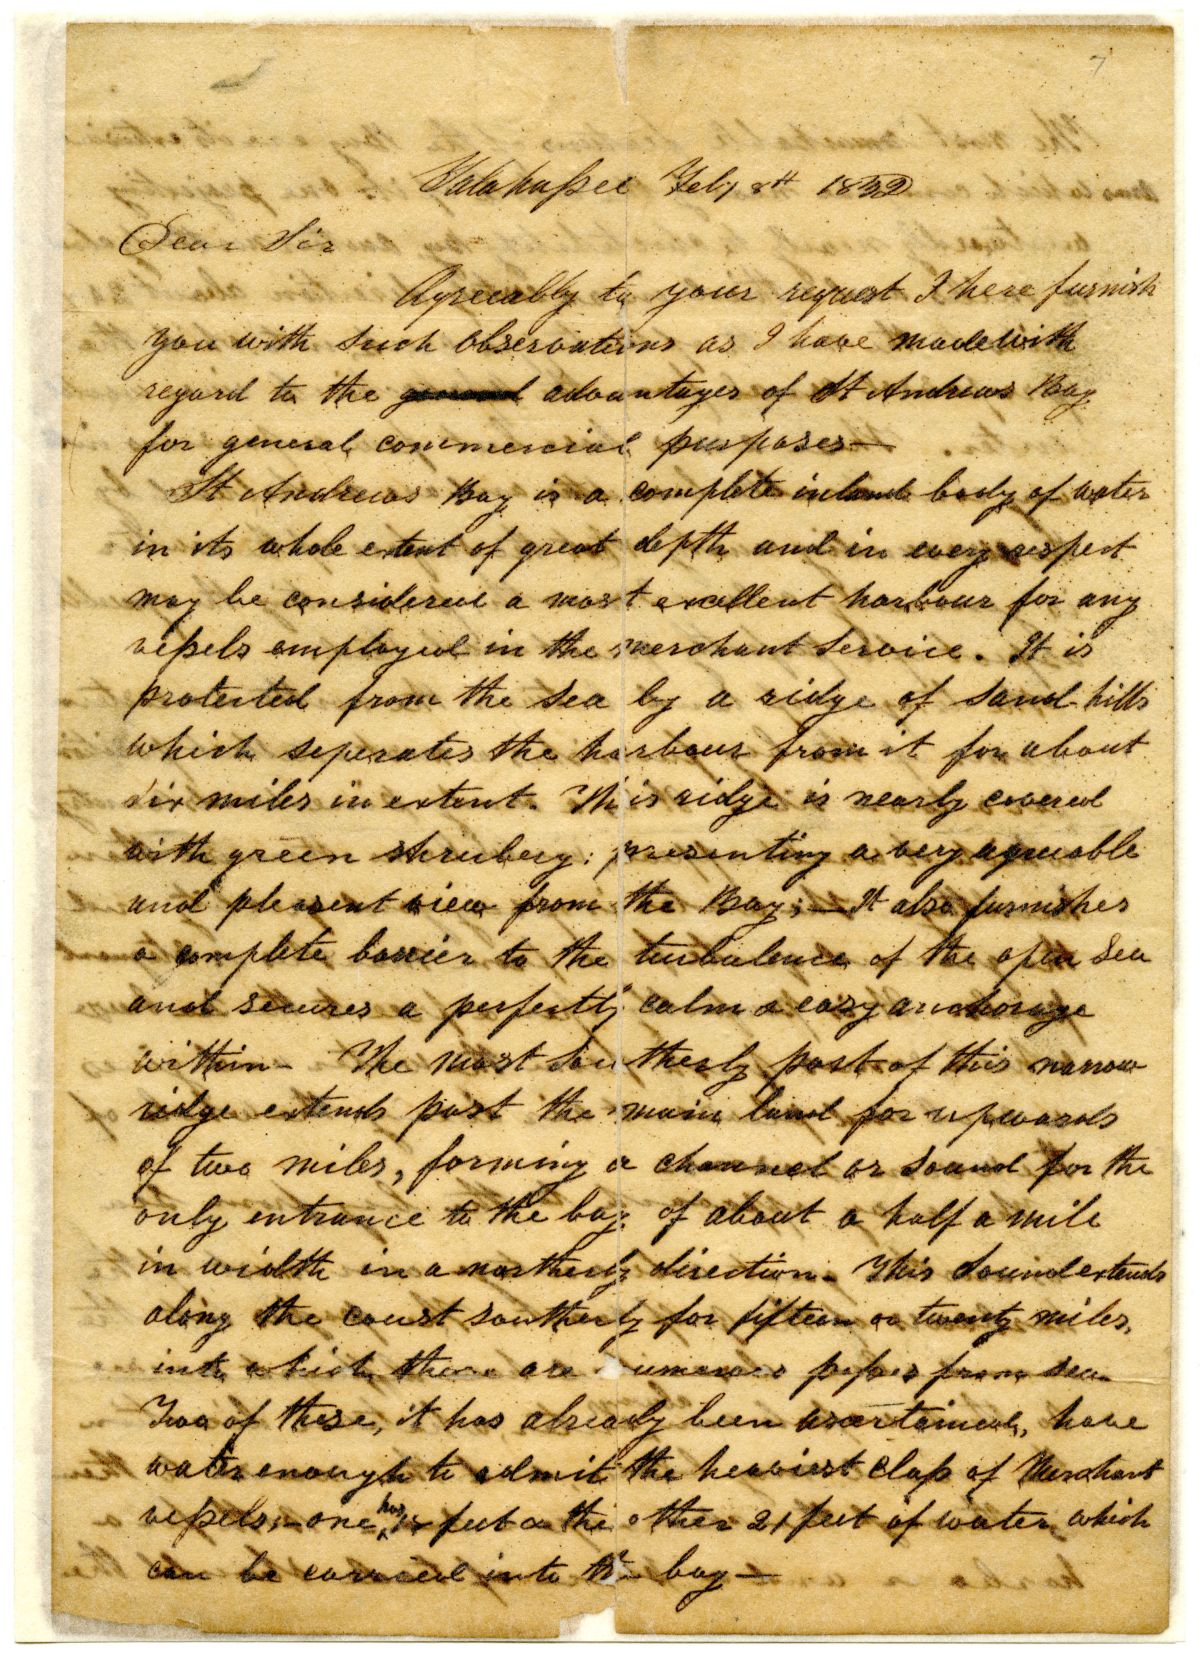 7
Talahassee Feby 8th 1832
Dear Sir
Agreeably to your request I here furnish
you with such observations as I have made with
regard to the general advantages of St Andrews Bay
for general commercial purposes—
St Andrews Bay is a complete inland body of water
in its whole extent of great depth and in every respect
may be considered a most excellent harbour for any
vessels employed in the merchant service. It is
protected from the sea by a ridge of sand-hills
which seperates the harbour from it for about
six miles in extent. This ridge is nearly covered
with green shrubery; presenting a very agreeable
and pleasent view from the Bay;— It also furnishes
a complete barrier to the turbulence of the open sea
and secures a perfectly calm & easy anchorage
within— The most Southerly part of this narrow
ridge extends past the main land for upwards
of two miles, forming a channel or sound for the
only entrance to the bay of about a half a mile
in width in a northerly direction. This Sound extends
along the coast southerly for fifteen or twenty miles,
into which there are numerous passes from sea.
Two of these, it has already been ascertained, have
water enough to admit the heaviest class of Merchant
vessels;— one has 18 feet & the other 21 feet of water, which
can be carried into the bay—